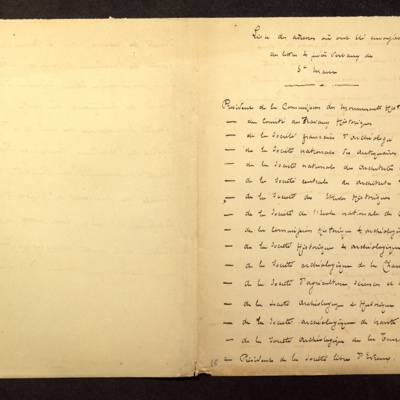 Liste des adresses où ont été envoyées
des lettres & procès verbaux de
St Maur
Président de la Commission des Monuments Hist
— du Comité des Travaux Historiques
— de la Société française d'Archéologie
— de la Société nationale des Antiquaires
— de la Société nationale des Architectes
— de la Société centrale des architectes
— de la Société des Etudes Historiques
— de la Société de l'Ecole nationale de
— de la Commission Historique & archéologique
— de la Société Historique & archéologique
— de la Société archéologique de la Cha
— de la Société d'agriculture, sciences et
— de la Société Archéologique & Historique
— de la Société archéologique de
— de la Société Archéologique de la Tour
— Président de la Société libre d'Evreux